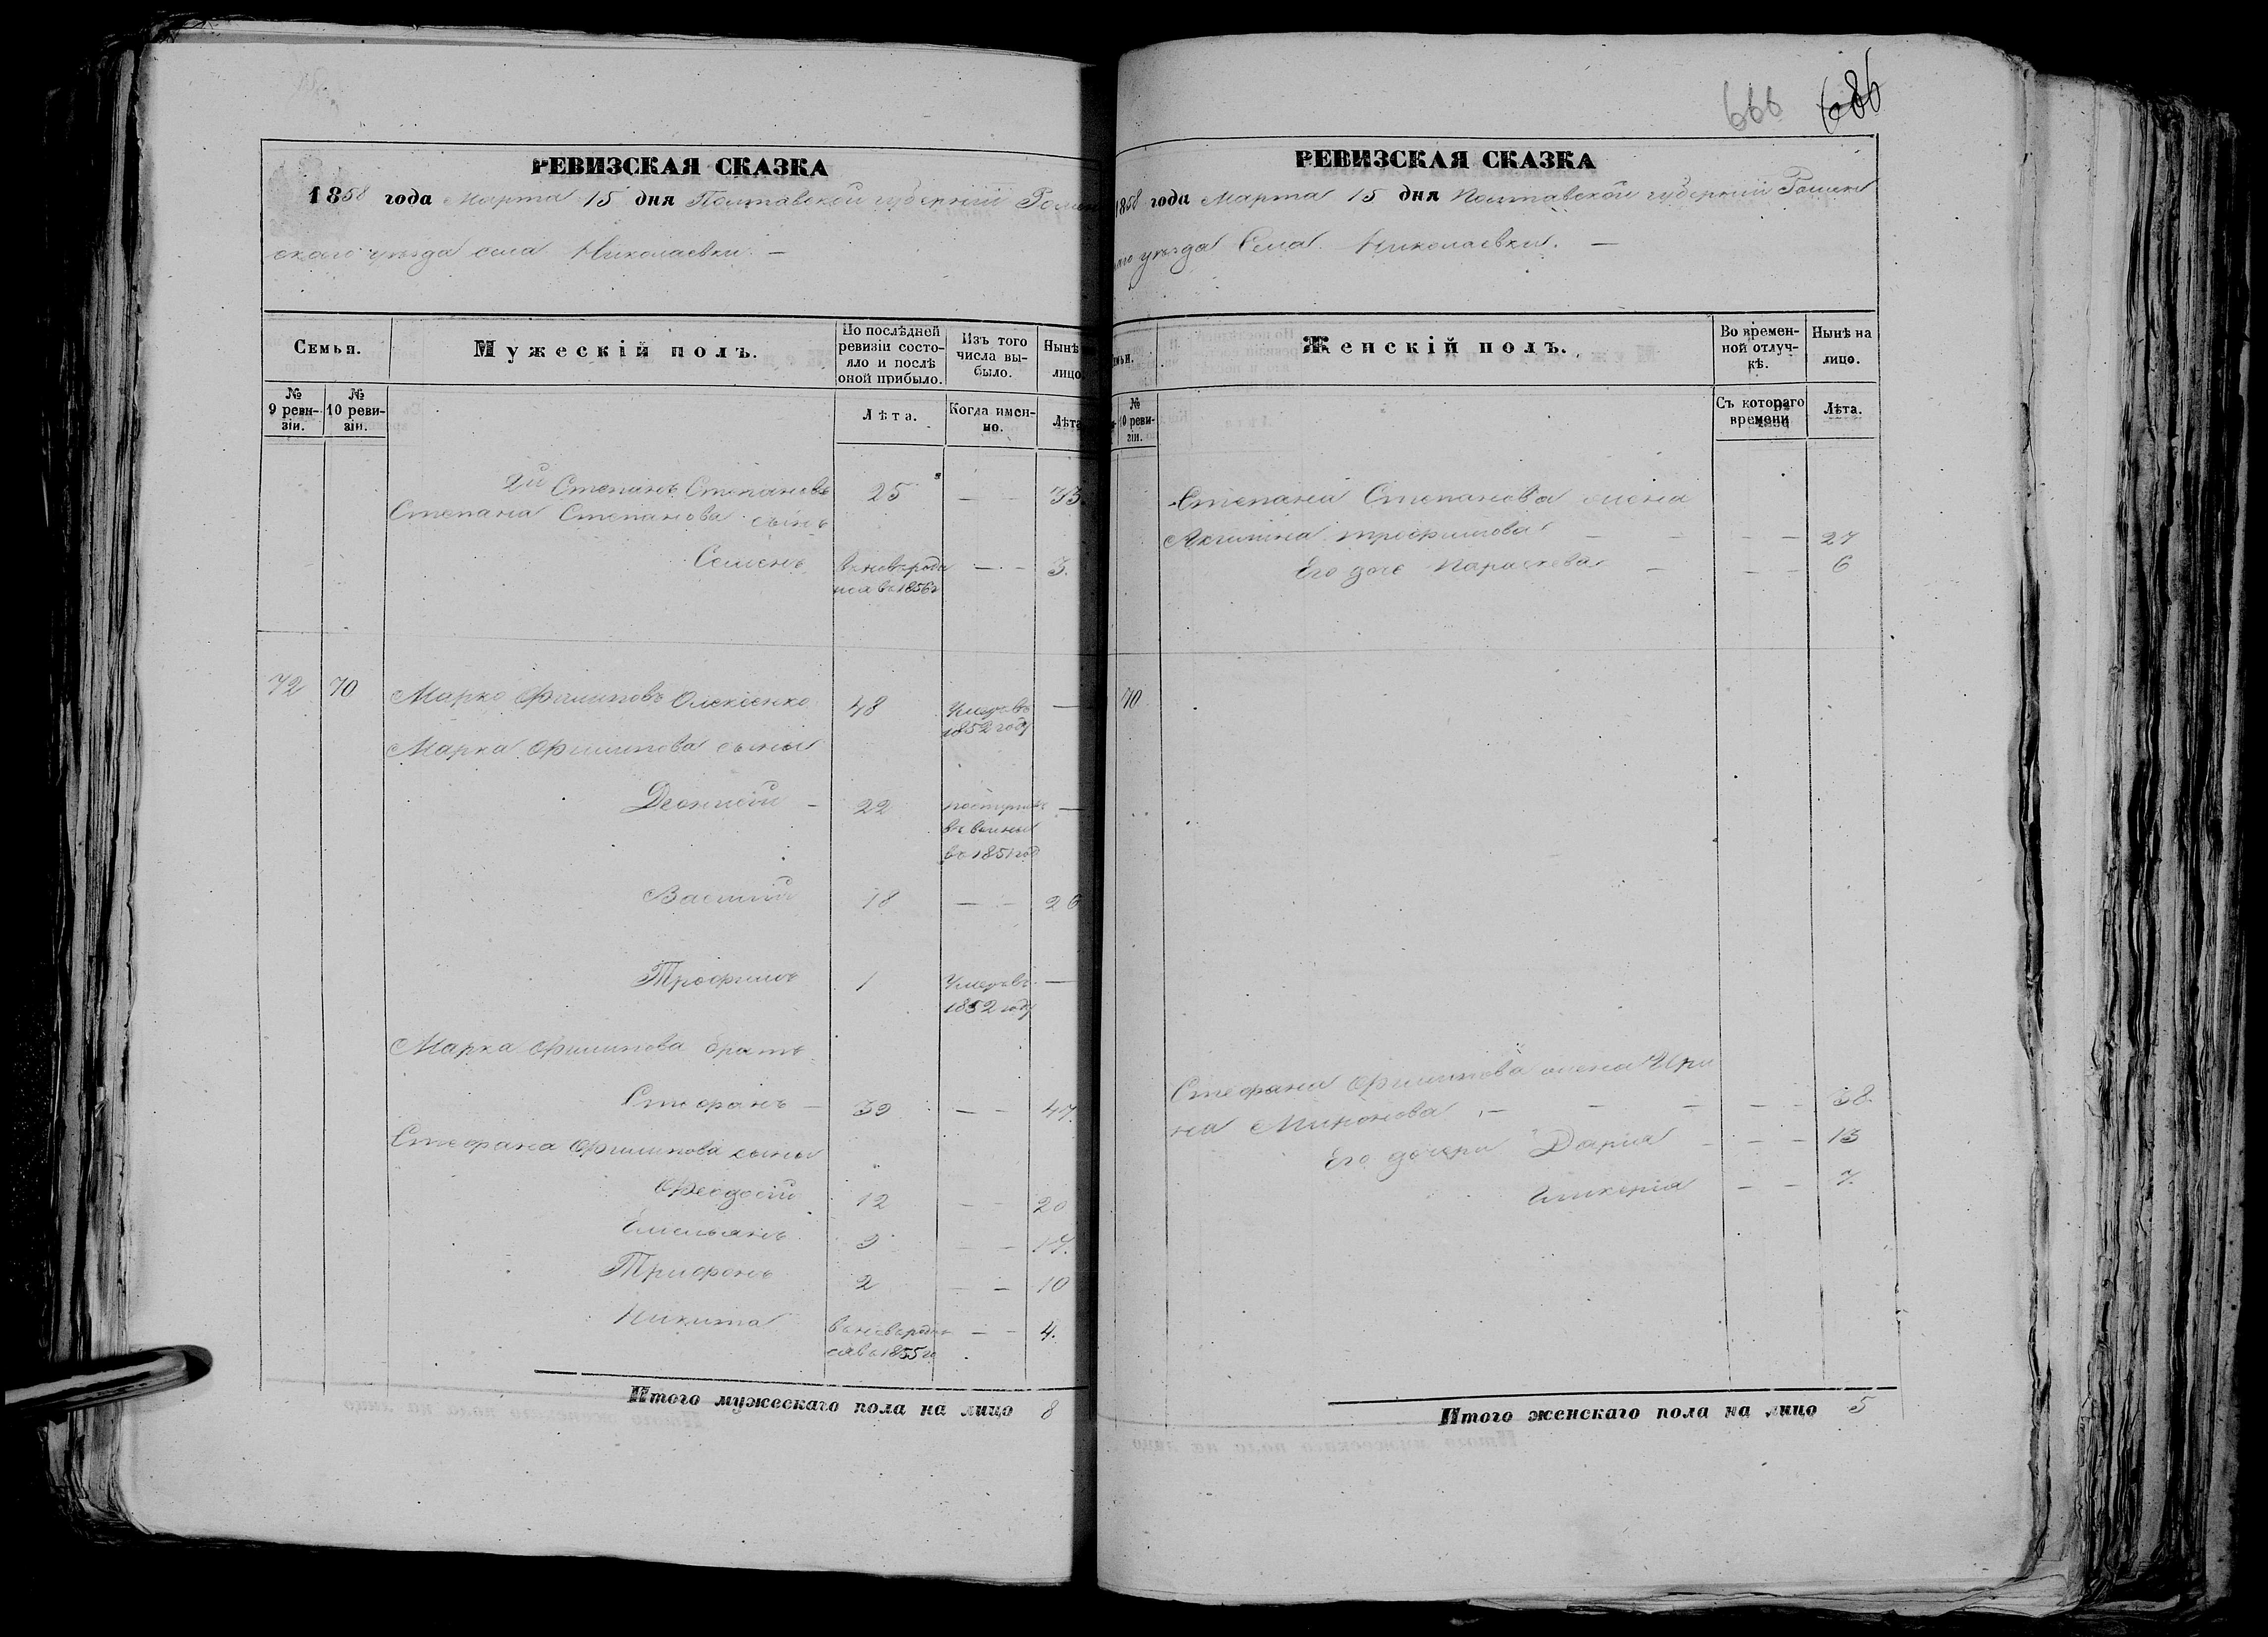 666 686
РЕВИЗСКАЯ СКАЗКА
1858 года Марта 15 дня Полтавской губерніи Ромен
скаго уѣзда села Николаевки. —
Семья.
Мужескій полъ.
По послѣдней ревизіи состояло и послѣ оной прибыло.
Изъ того числа выбыло.
Нынѣ
лицо.
№ 9 ревизіи.
№ 10 ревизіи.
Лѣта.
Когда именно.
Лѣта
2й Степанъ Степановъ 25 — — 33.
Степана Степанова сынъ
Семенъ вновь роди — — 3.
лся въ 1856г
72 70 Марко Филиповъ Олексіенко 48 Умеръ въ —
1852 году
Марка Филипова сыны
Деонисій — 22 поступилъ —
въ
въ 1851 год
Василій 18 — — 26
Трофимъ 1 Умеръ въ —
1852 году
Марка Филипова братъ
Стефанъ — 39 — — 47.
Стефана Филипова сыны
Феодосій 12 — — 20
Емельянъ 9 — — 17.
Трифонъ 2 — — 10
Никита вновь родил — — 4.
ся въ 1855 го
Итого мужескаго пола на лицо 8
РЕВИЗСКАЯ СКАЗКА
1858 года Марта 15 дня Полтавской губерніи Ромен
скаго уѣзда Села Николаевки. —
мьи.
Женскій полъ.
Во временной отлучкѣ.
Нынѣ на лицо.
№ 10 ревизіи.
Съ котораго времени
Лѣта.
Степана Степанова жена
Акилина Трофимова — — — — 27
Его дочь Параскева — — — 6
70
Стефана Филипова жена Ири
на Миронова — — — — — 38.
Его дочери Дарія — — — 13
Гликерія — — 7.
Итого женскаго пола на лицо 5